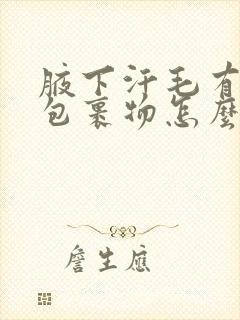 腋下汗毛有
包裹物怎麼
詹生應